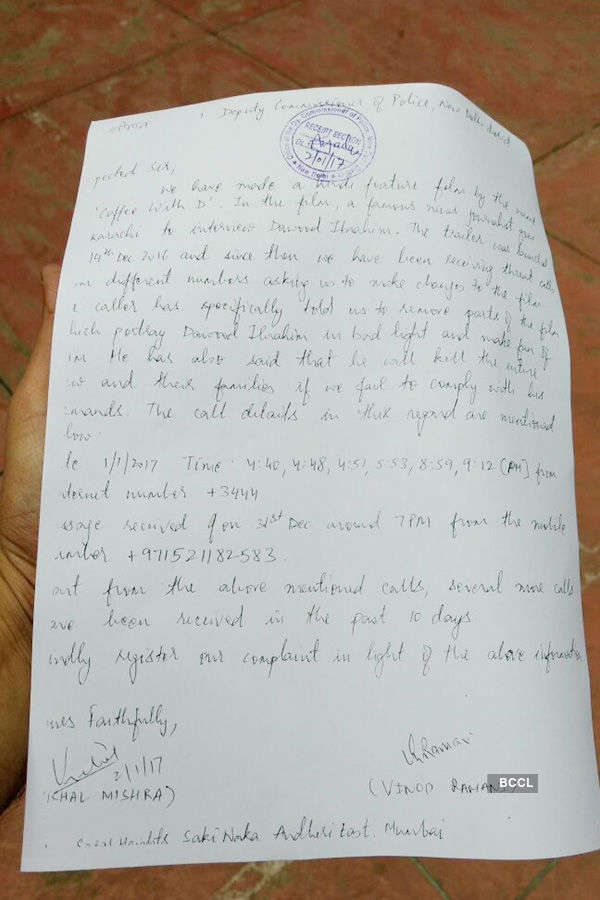 Deputy Commissioner of Police, New Delhi
RECEIPT SECTION
2/01/17
New Delhi
pected Sir,
we have made a hindi feature film by the name
'Coffee with D'. In the film, a famous news journalist goes
Karachi to interview Dawood Ibrahim. The trailer was launched
19th Dec 2016 and since then we have been receiving threat calls
om different numbers asking us to make changes to the film
e caller has specifically told us to remove parts of the film
hich portray Dawood Ibrahim in bad light and make fun of
im He has also said that he will kill the entire
ew and their families if we fail to comply with his
mands. The call details in this regard are mentioned
low
te 1/1/2017 Time: 4:40, 4:48, 4:51, 5:53, 8:59, 9:12 [PM] from
ternet number +3444
ssage received on 31st Dec around 7 PM from the mobile
umber +971521182583.
art from the above mentioned calls, several more calls
ave been received in the past 10 days
indly register our complaint in light of the above information
urs Faithfully,
2/1/17
SHAL MISHRA)
(VINOD RAMANI)
BCCL
Heights Saki Naka Andheri East, Mumbai